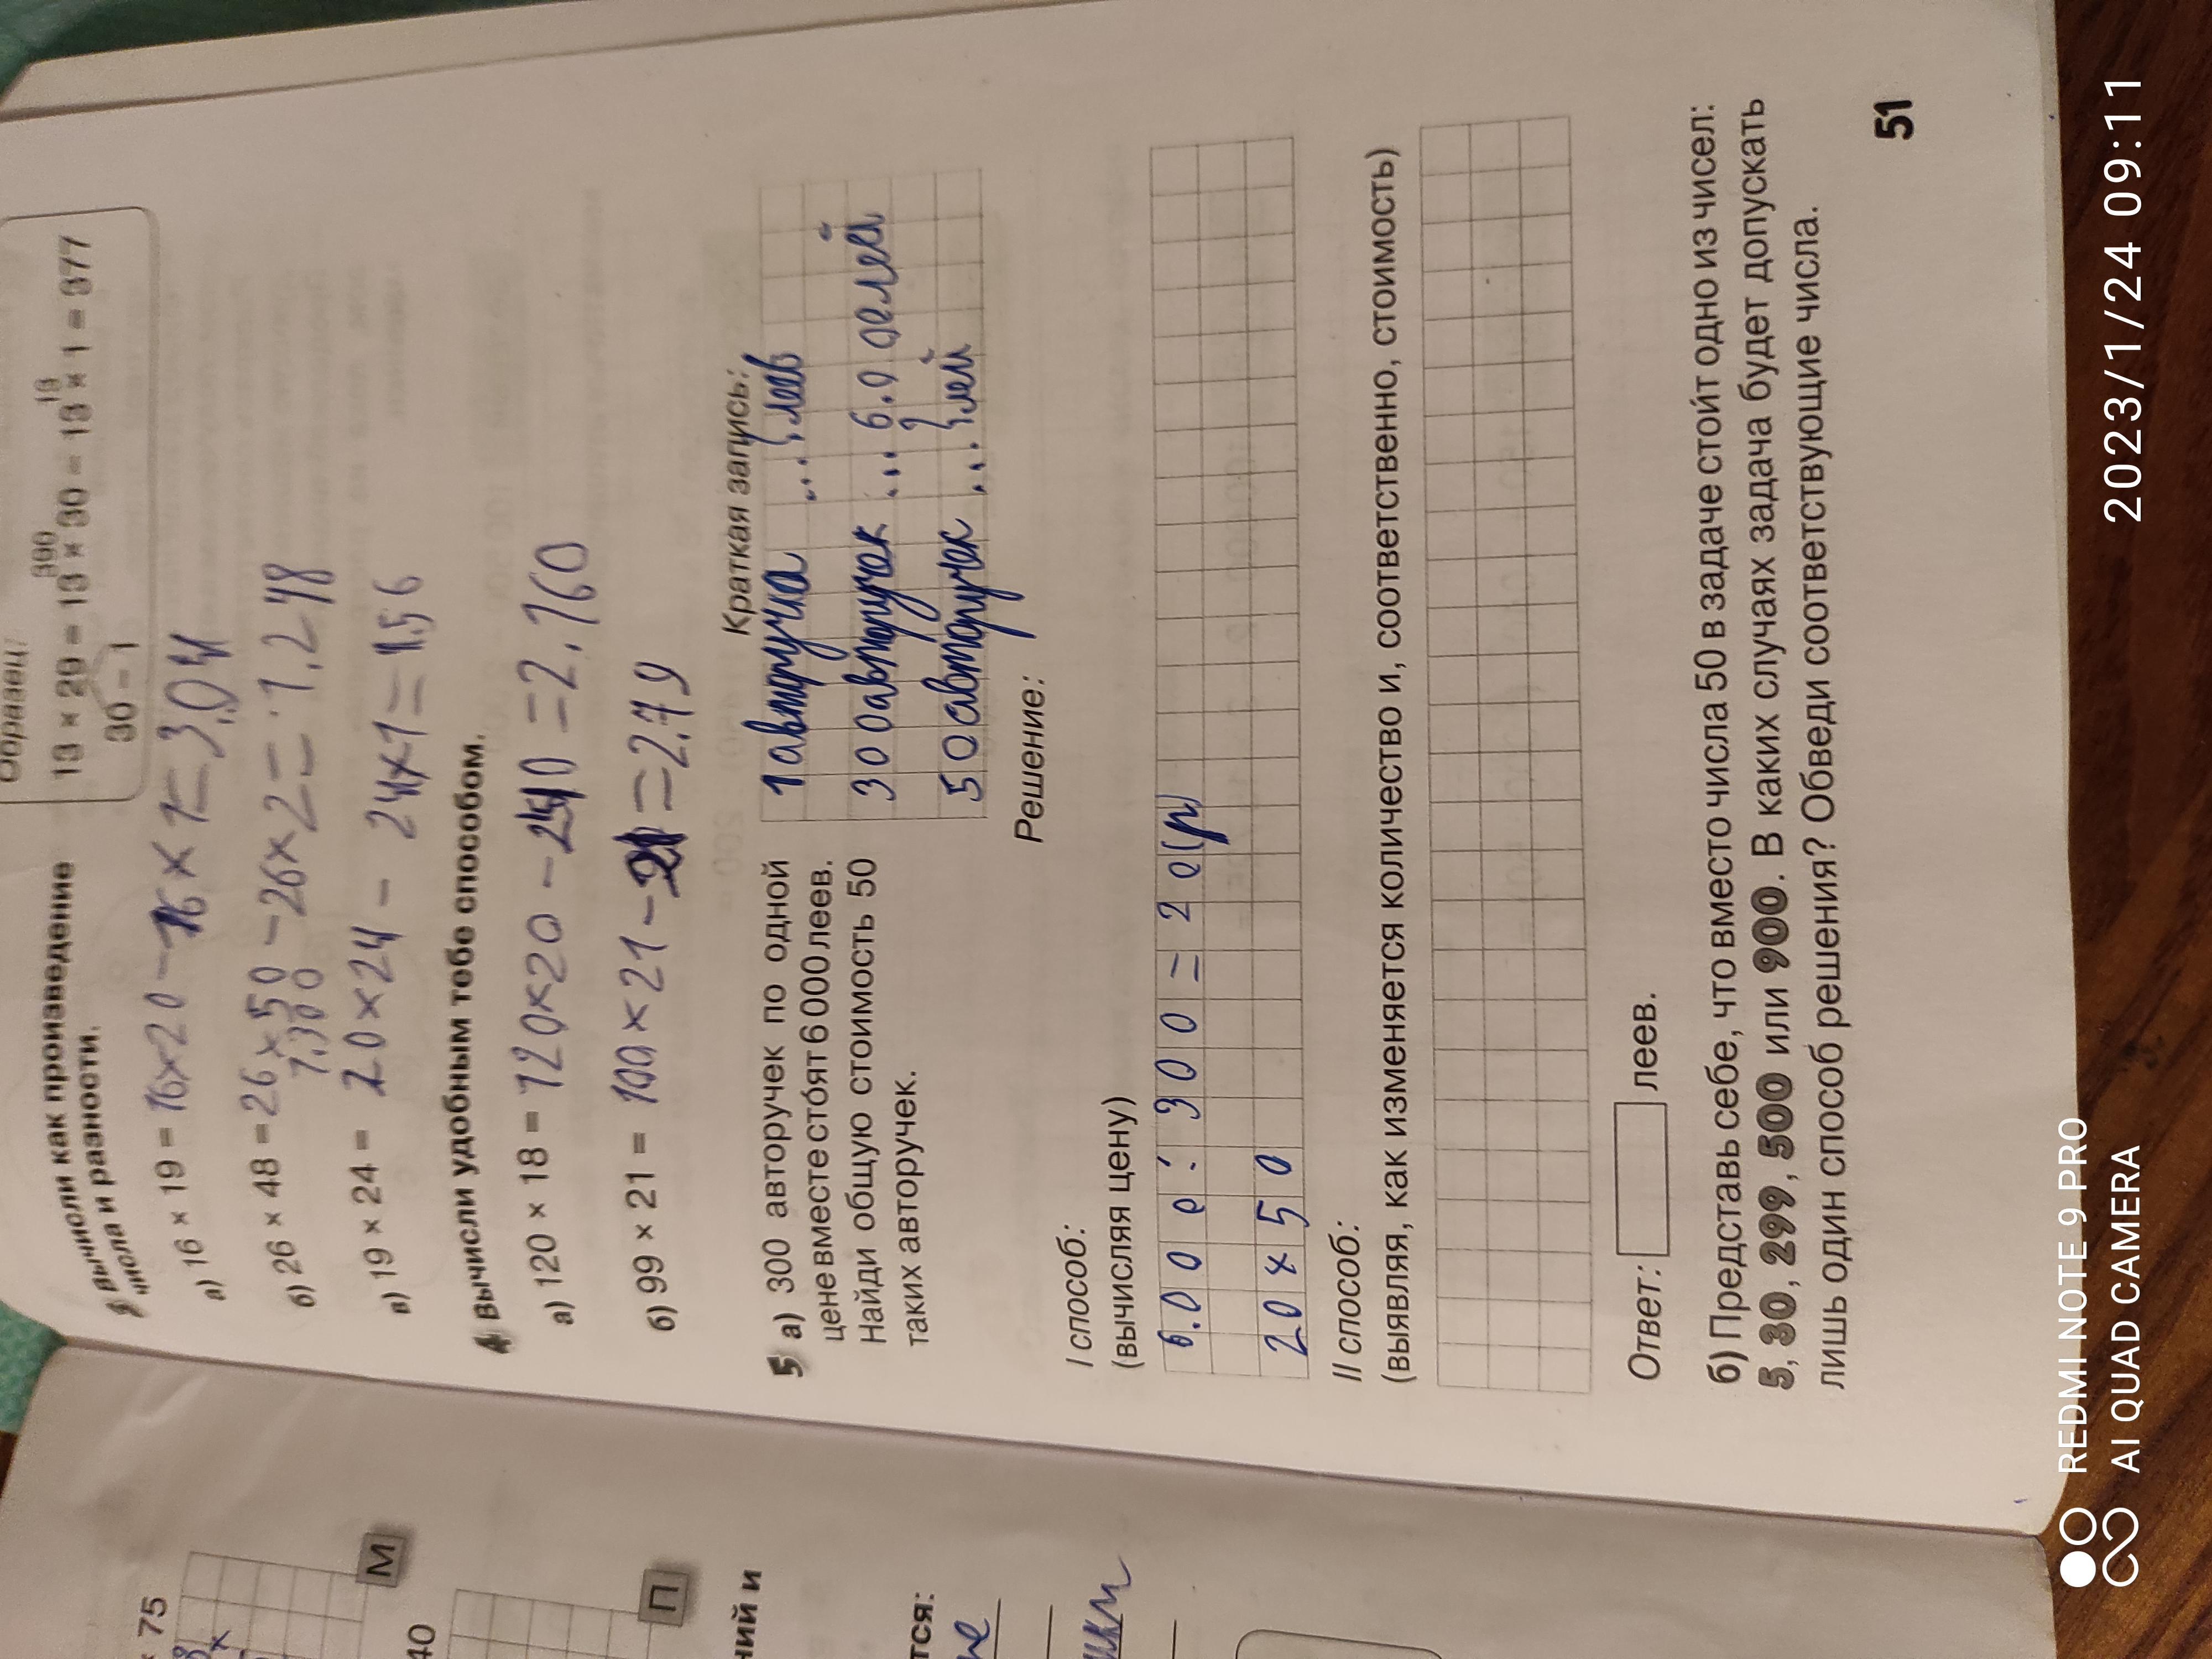 Образец:
390 13
13 × 29 = 13 × 30 - 13 × 1 = 377
30 - 1
3 Вычисли как произведение
числа и разности.
а) 16 × 19 = 16×20 - 16 × 1 = 3,04
б) 26 × 48 = 26 × 50 - 26 × 2 = 1.248
1.300
в) 19 × 24 = 20 × 24 - 24×1 =
4 Вычисли удобным тебе способом.
а) 120 × 18 = 120×20 - 240 = 2.160
б) 99 × 21 = 100 × 21 - 21 = 2.79
5 а) 300 авторучек по одной
цене вместе стоят 6 000 леев.
Найди общую стоимость 50
таких авторучек.
Краткая запись:
1 авторучка ... ? леев
300 авторучек ... 6.0
50 авторучек ... ? лей
Решение:
I способ:
(вычисляя цену)
6.000 : 300 = 20(р)
20 × 50
II способ:
(выявляя, как изменяется количество и, соответственно, стоимость)
Ответ: леев.
б) Представь себе, что вместо числа 50 в задаче стоит одно из чисел:
5, 30, 299, 500 или 900. В каких случаях задача будет допускать
лишь один способ решения? Обведи соответствующие числа.
51
× 75
М
40
П
ний и
тся:
REDMI NOTE 9 PRO
AI QUAD CAMERA
2023/1/24 09:11